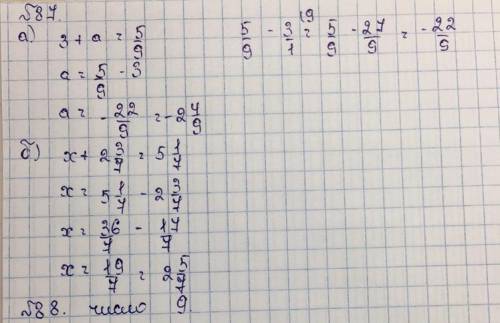 №87.
а) 3 + a = 5/9
5/9 - 3/1 (9 = 5/9 - 27/9 = -22/9
a = 5/9 - 3
a = -22/9 = -2 4/9
б) x + 2 3/7 = 5 1/7
x = 5 1/7 - 2 3/7
x = 36/7 - 17/7
x = 19/7 = 2 5/7
№88. число 9